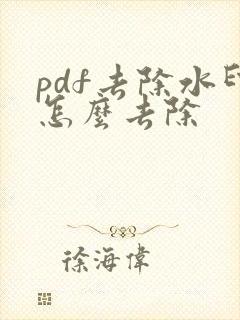 pdf去除水印
怎麼去除
徐海偉